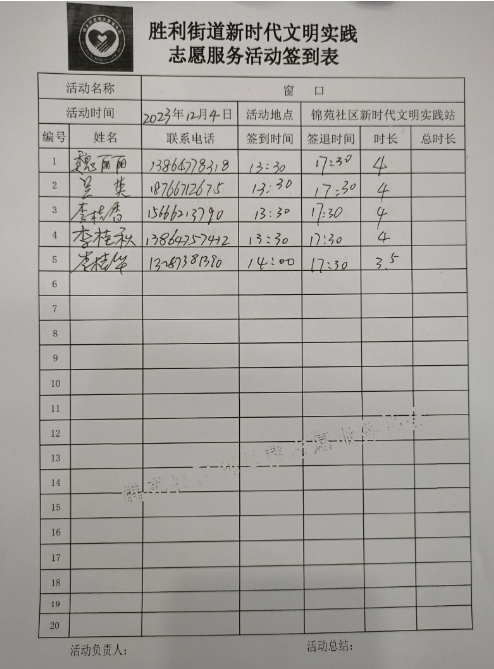 胜利街道新时代文明实践
志愿服务活动签到表
活动名称 窗 口
活动时间 2023年12月4日 活动地点 锦苑社区新时代文明实践站
编号 姓名 联系电话 签到时间 签退时间 时长 总时长
1 魏丽丽 13864778318 13:30 17:30 4
2 兰英 18766712675 13:30 17:30 4
3 李桂香 15666213790 13:30 17:30 4
4 李桂秋 13864757412 13:30 17:30 4
5 李桂华 13287381390 14:00 17:30 3.5
6
7
8
9
10
11
12
13
14
15
16
17
18
19
20
活动负责人: 活动总结: